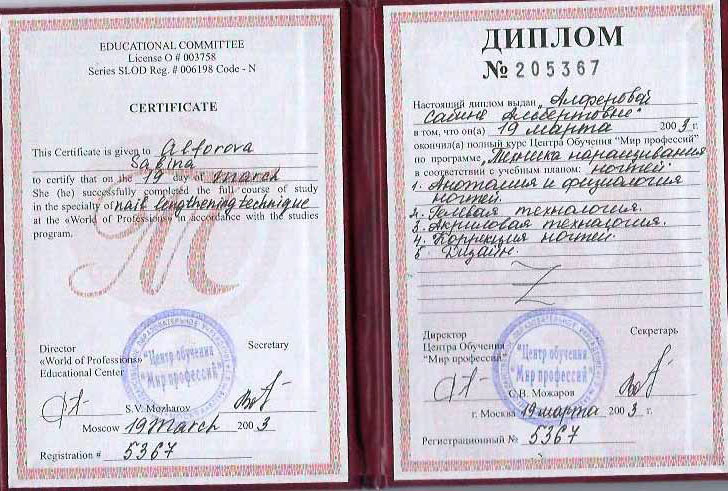 EDUCATIONAL COMMITTEE
License O # 003758
Series SLOD Reg. # 006198 Code - N
CERTIFICATE
This Certificate is given to Alforova
Sabina
to certify that on the 19 day of march
She (he) successfully completed the full course of study
in the specialty of nail lengthening technique
at the «World of Professions» in accordance with the studies
program.
Director
«World of Professions»
Educational Center
Secretary
"Центр обучения
"Мир профессий"
S.V. Mozharov
Moscow 19 March 2003
Registration # 5367
ДИПЛОМ
№ 205367
Настоящий диплом выдан Алферовой
Сабине Альбертовне
в том, что он(а) 19 марта 2003 г.
окончил(а) полный курс Центра Обучения "Мир профессий"
по программе "Техника наращивания
в соответствии с учебным планом: ногтей"
1. Анатомия и физиология
ногтей.
2. Гелевая технология.
3. Акриловая технология.
4. Коррекция ногтей.
5 Дизайн.
Директор
Центра Обучения
"Мир профессий"
Секретарь
"Центр обучения
"Мир профессий"
С.В. Можаров
г. Москва 19 марта 2003 г.
Регистрационный № 5367